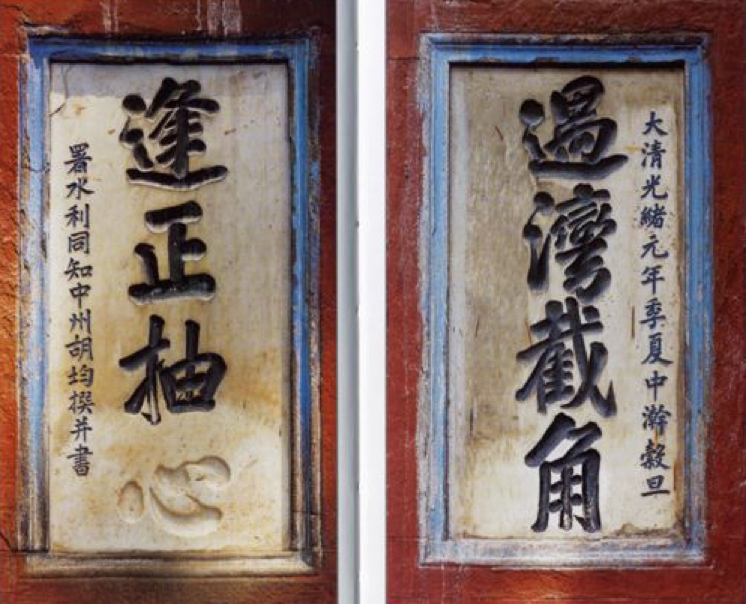 大清光緒元年季夏中澣穀旦
過灣截角
逢正抽心
署水利同知中州胡均撰并書